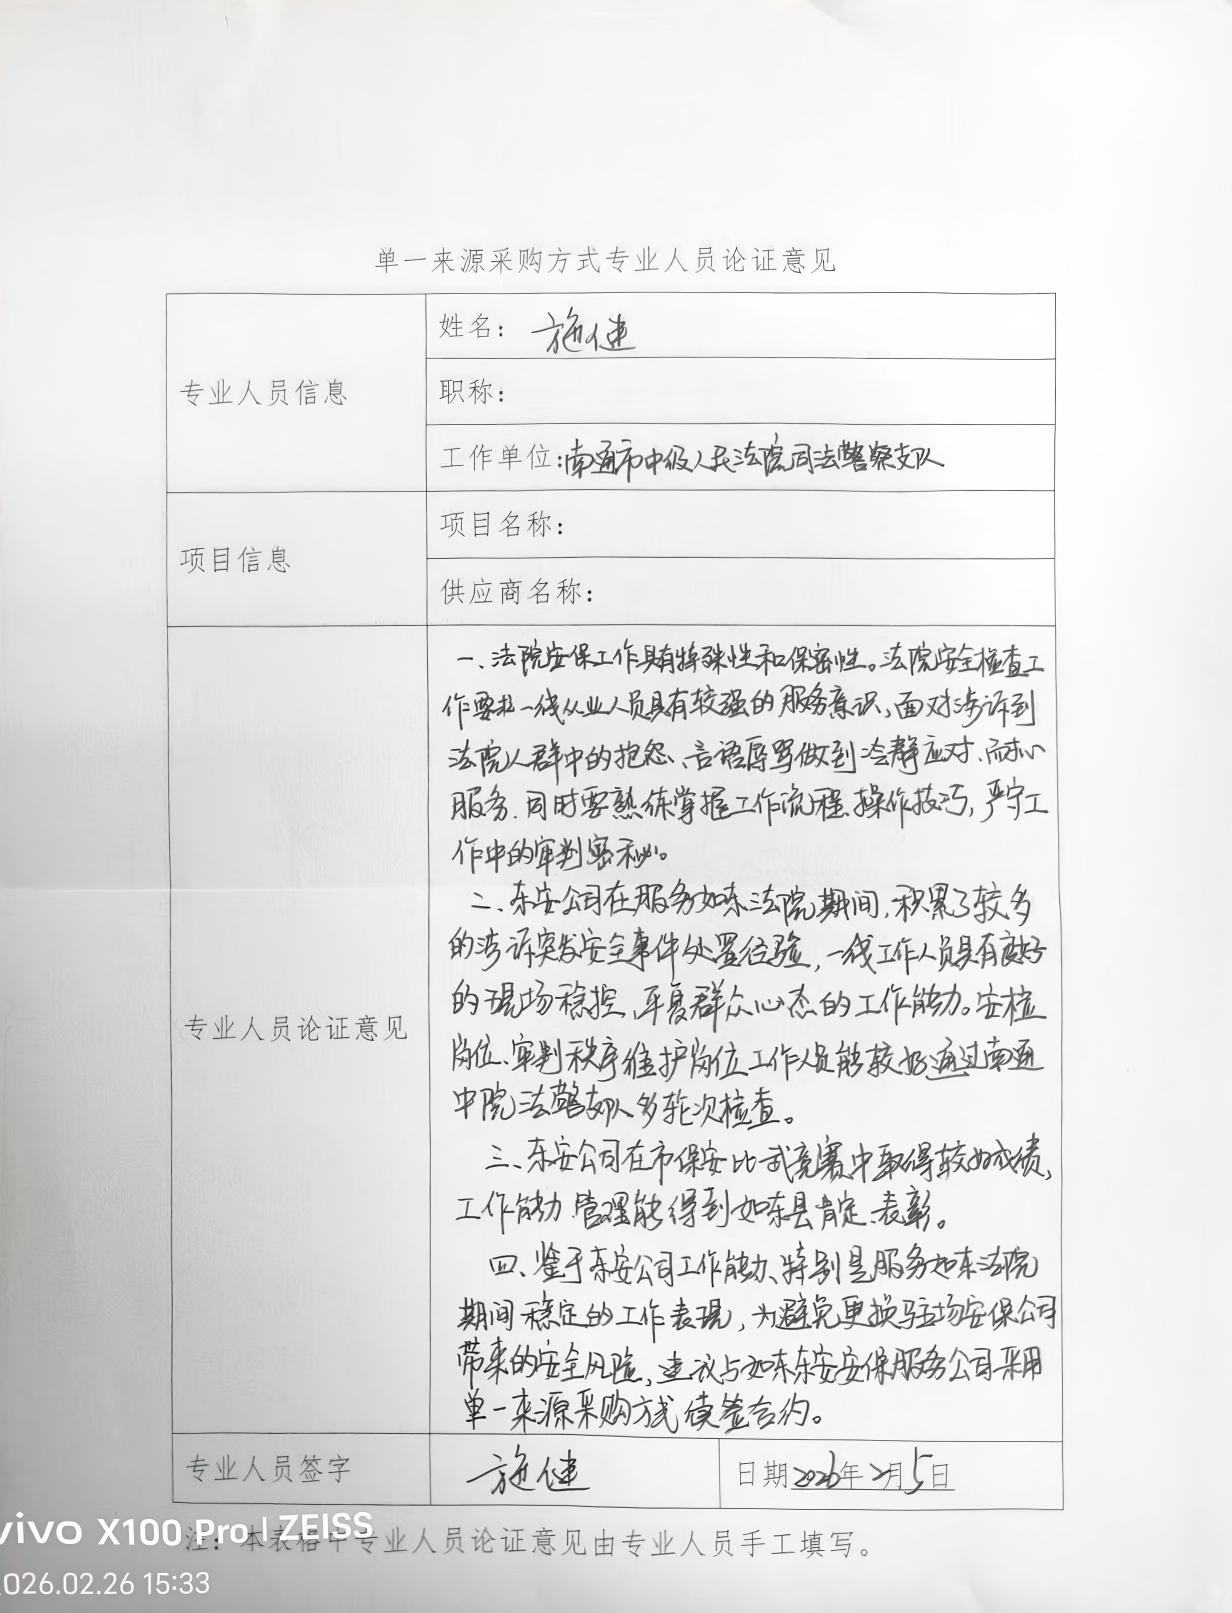 单一来源采购方式专业人员论证意见
专业人员信息
姓名：施健
职称：
工作单位：南通市中级人民法院司法警察支队
项目信息
项目名称：
供应商名称：
专业人员论证意见
一、法院安保工作具有特殊性和保密性。法院安全检查工
作要求一线从业人员具有较强的服务意识，面对涉诉到
法院人群中的抱怨、言语辱骂做到冷静应对、耐心
服务.同时要熟练掌握工作流程、操作技巧，严守工
作中的审判密秘。
二、东安公司在服务如东法院期间，积累了较多
的涉诉突发安全事件处置经验，一线工作人员具有良好
的现场稳控、平复群众心态的工作能力。安检
岗位、审判秩序维护岗位工作人员能较好通过南通
中院法警支队多轮次检查。
三、东安公司在市保安比武竞赛中取得较好成绩，
工作能力、管理能得到如东县肯定、表彰。
四、鉴于东安公司工作能力、特别是服务如东法院
期间稳定的工作表现，为避免更换驻场安保公司
带来的安全风险，建议与如东东安安保服务公司采用
单一来源采购方式续签合约。
专业人员签字
施健
日期2026年2月5日
注：本表格中专业人员论证意见由专业人员手工填写。
vivo X100 Pro | ZEISS
026.02.26 15:33